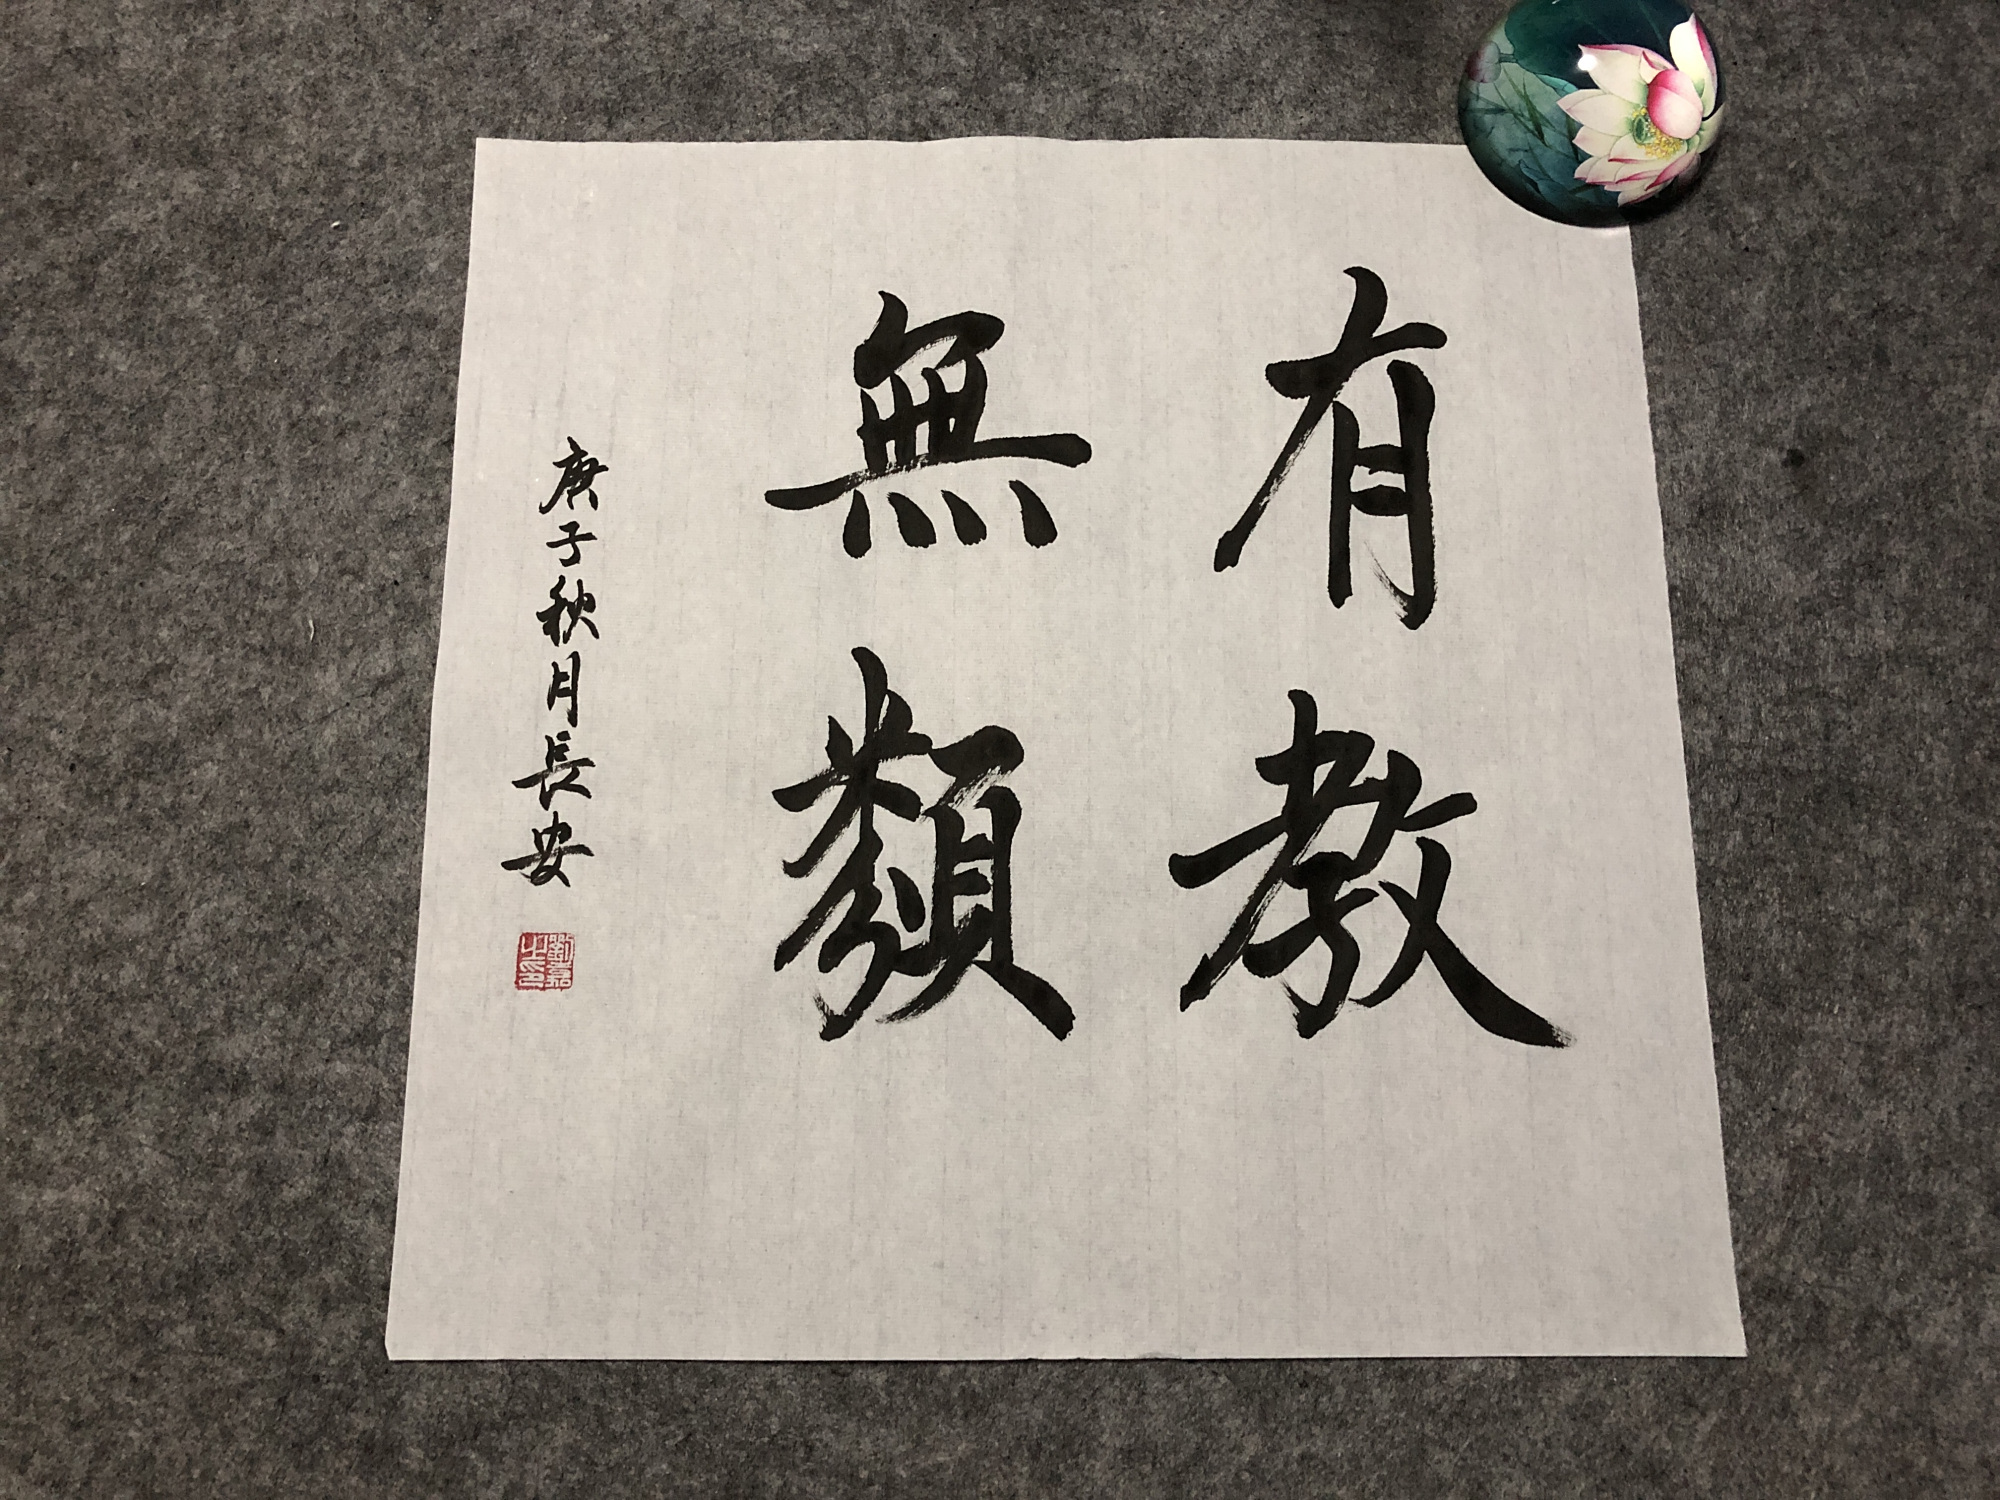 有教
無類
庚子秋月長安
劉嘉
之印